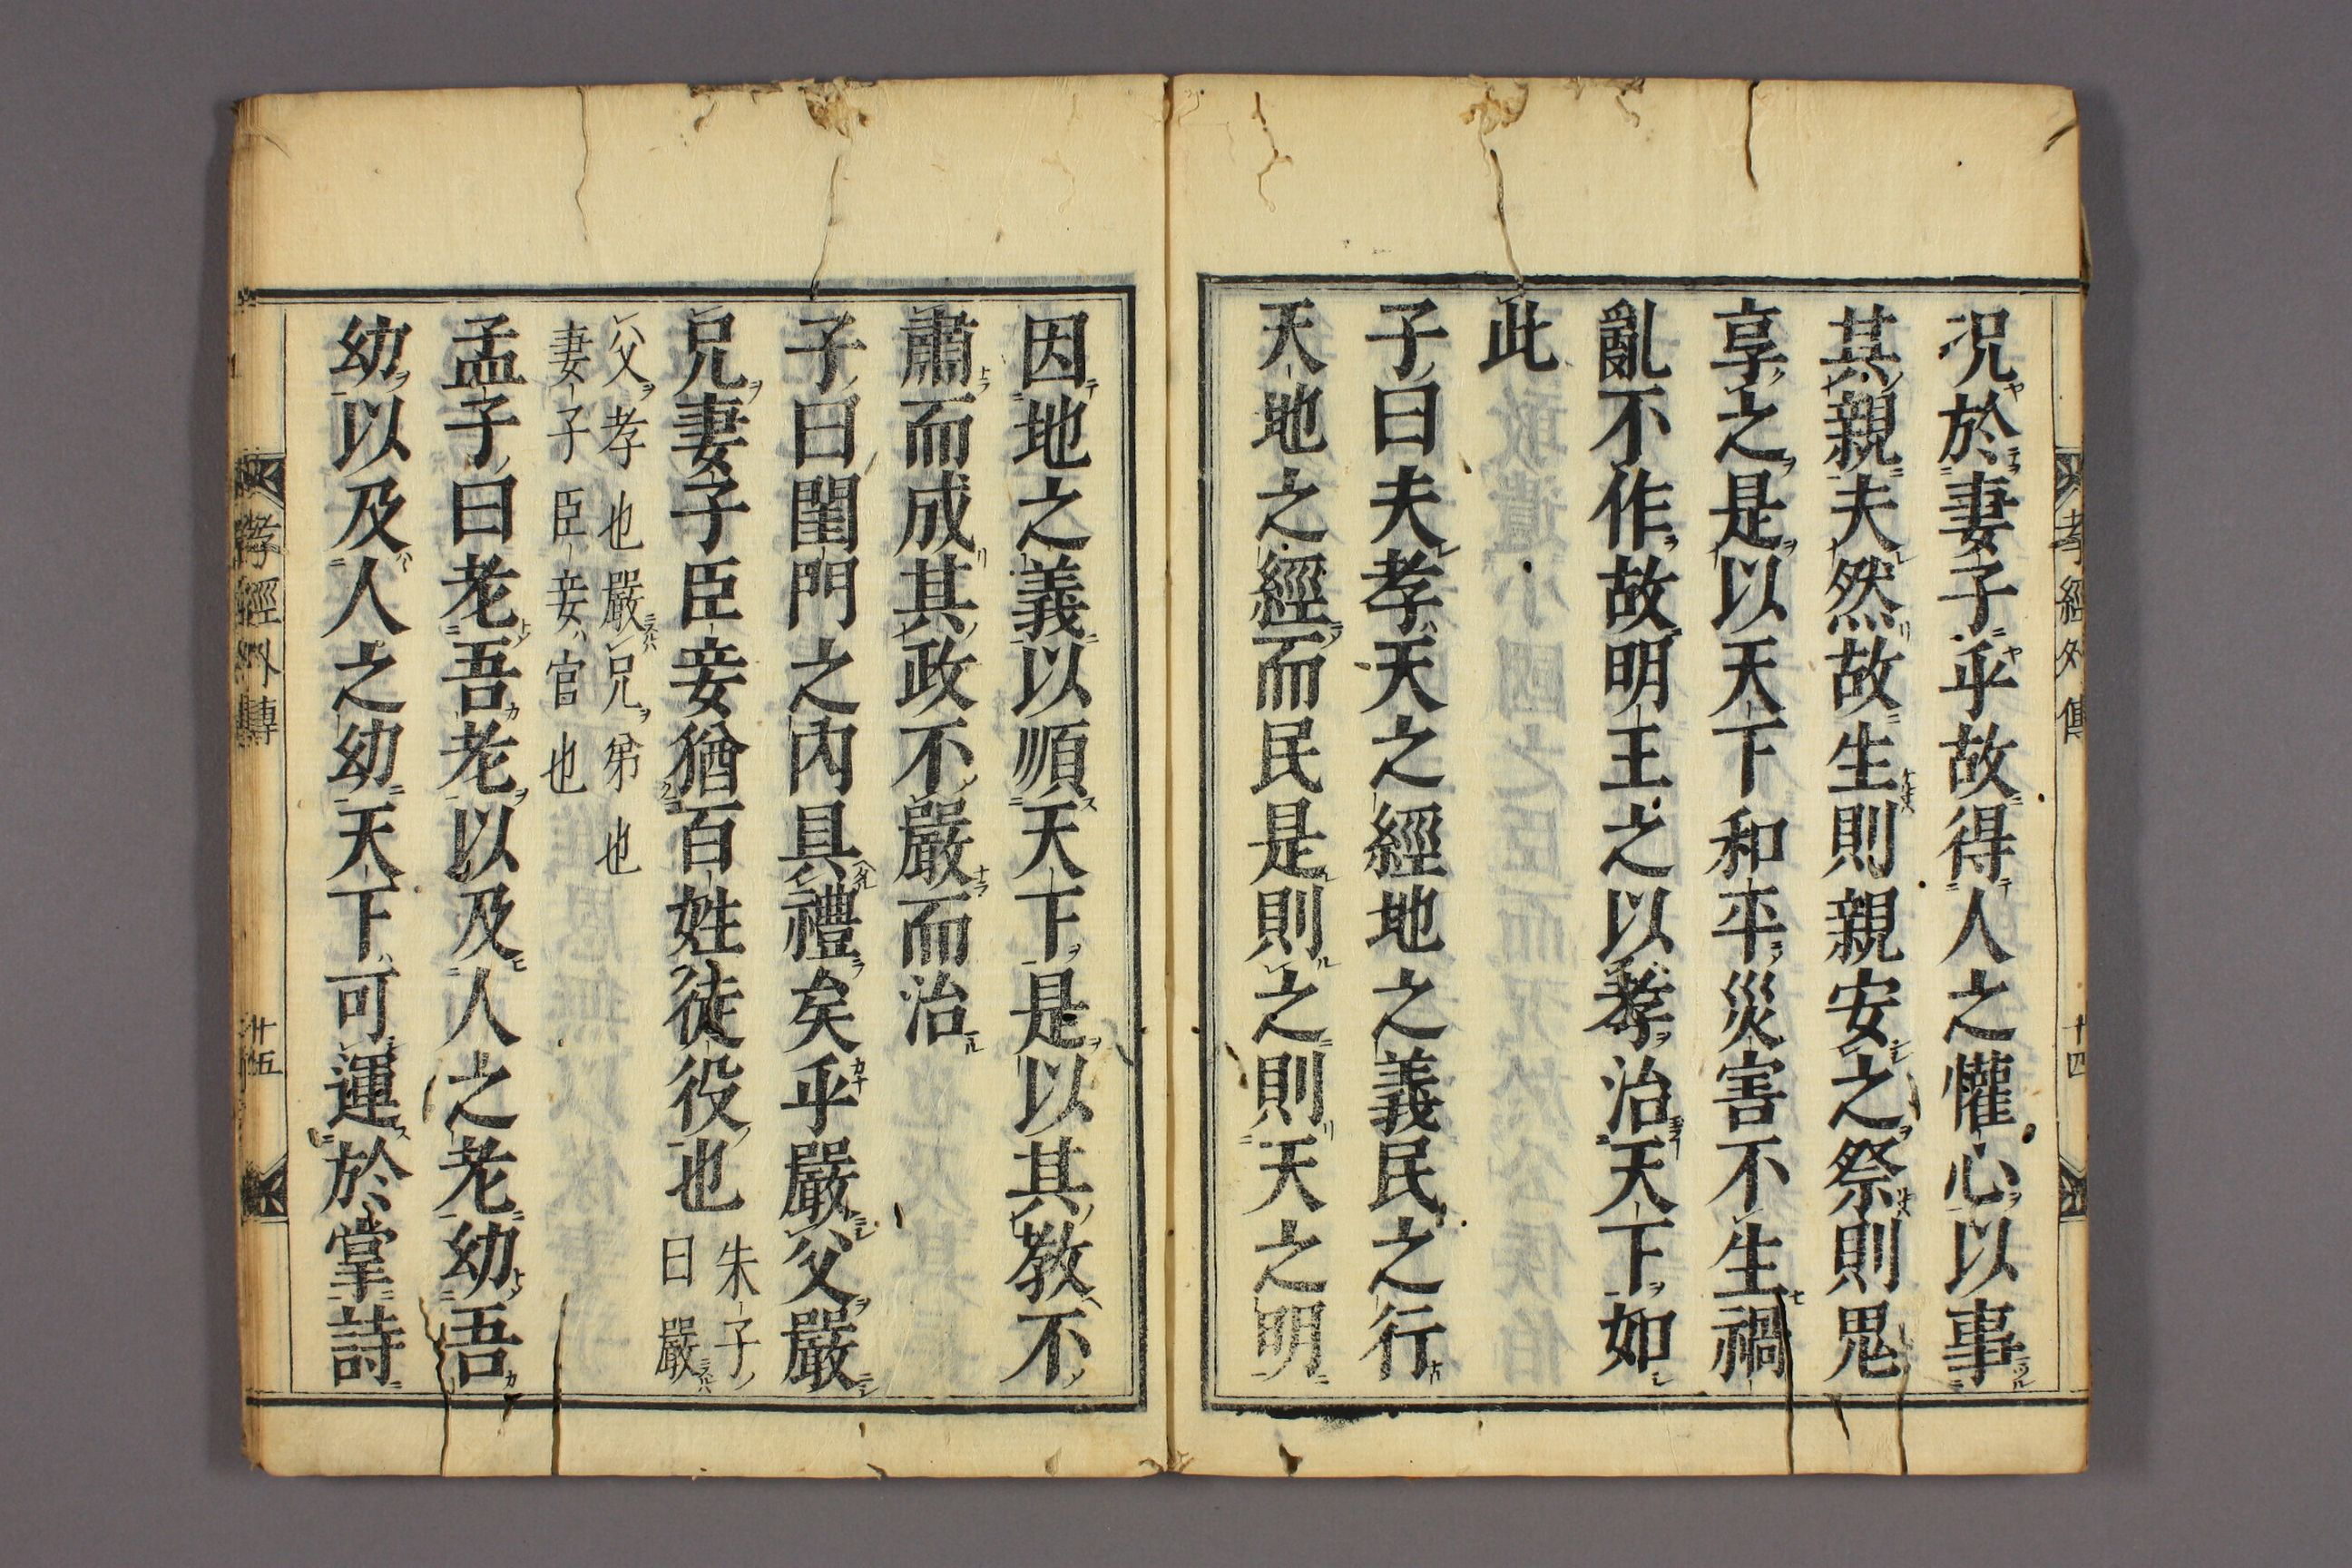 況於妻子乎故得人之懽心以事
其親夫然故生則親安之祭則鬼
享之是以天下和平災害不生禍
亂不作故明王之以孝治天下如
此
子曰夫孝天之經地之義民之行
天地之經而民是則之則天之明
孝經外傳
十四
因地之義以順天下是以其教不
肅而成其政不嚴而治
子曰閨門之內具禮矣乎嚴父嚴
兄妻子臣妾猶百姓徒役也
朱子
曰嚴
父孝也嚴兄弟也
妻子臣妾官也
孟子曰老吾老以及人之老幼吾
幼以及人之幼天下可運於掌詩
孝經外傳
廿五